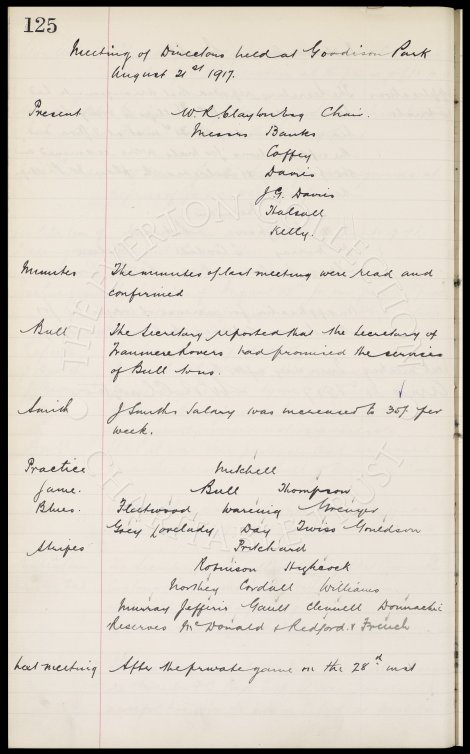 125
Meeting of Directors held at Goodison Park
August 21st 1917.
Present W. R. Clayton Esq Chair.
Messrs Banks
Coffey
Davies
J. G. Davies
Halsall
Kelly.
Minutes The minutes of last meeting were read and
confirmed
Bull The Secretary reported that the Secretary of
Tranmere Rovers had promised the services
of Bull to us.
Smith J Smiths Salary was increased to 35/- per
week.
Practice Mitchell
Game. Bull Thompson
Blues. Fleetwood Wareing Grenyer
Grey Lovelady Day Twiss Gouldson
Stripes Pritchard
Robinson Hitchcock
Northey Cordall Williams
Murray Jefferis Gault Clennell Donnachie
Reserves McDonald & Redford & French
Next meeting After the private game on the 28th inst
THE EVERTON COLLECTION
CHARITABLE TRUST